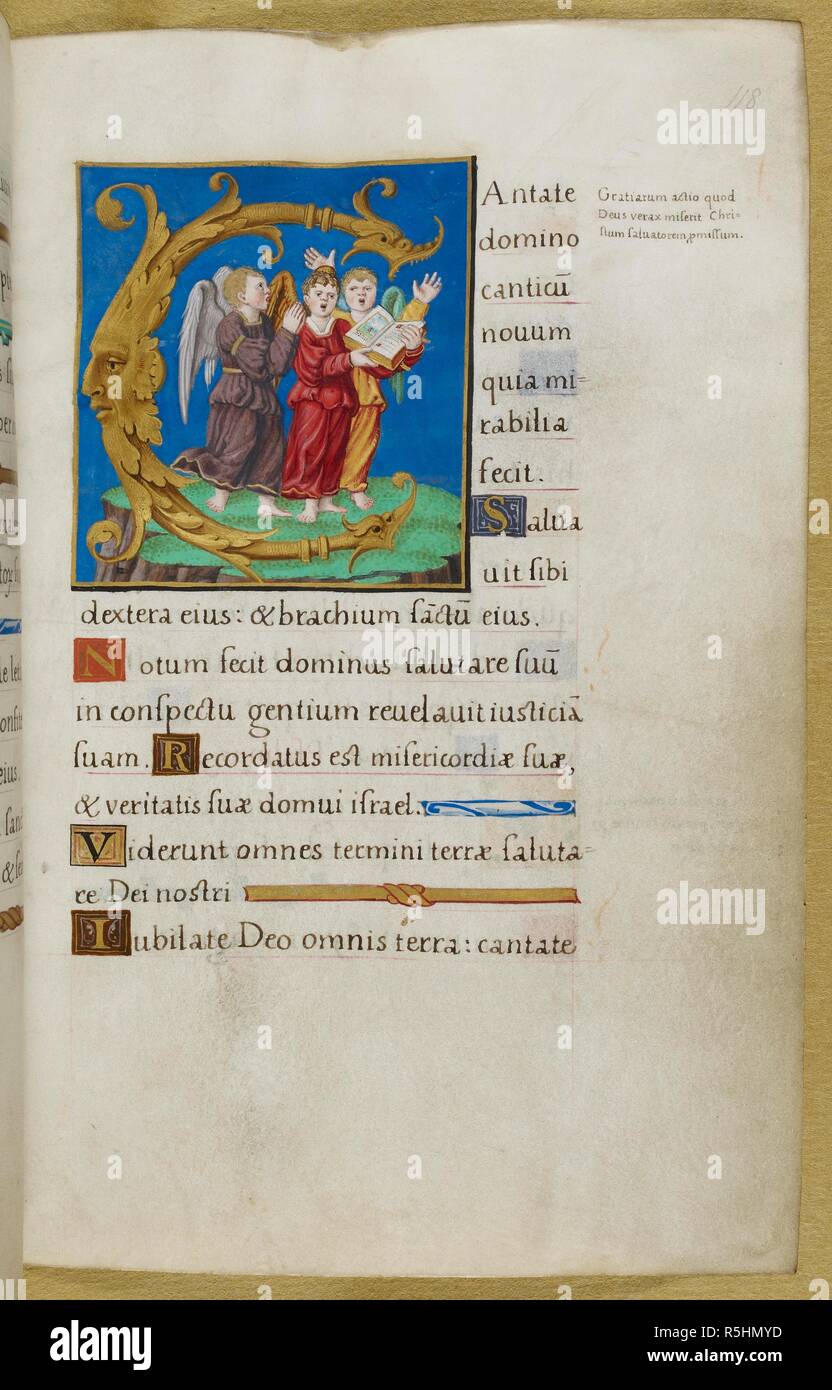 118
CAntate
domino
canticū
nouum
quia mi=
rabilia
fecit.
Salua
uit ſibi
dextera eius: & brachium ſāctū eius.
Notum fecit dominus ſalutare ſuū
in conſpectu gentium reuelauit iusticiā
ſuam. Recordatus est miſericordiæ ſuæ,
& veritatis ſuæ domui iſrael.
Viderunt omnes termini terræ ſaluta=
re Dei noſtri
Iubilate Deo omnis terra: cantate
Gratiarum actio quod
Deus verax miſerit Chri=
ſtum ſaluatorem pmiſſum.
alamy
Image ID: R5HMYD
www.alamy.com